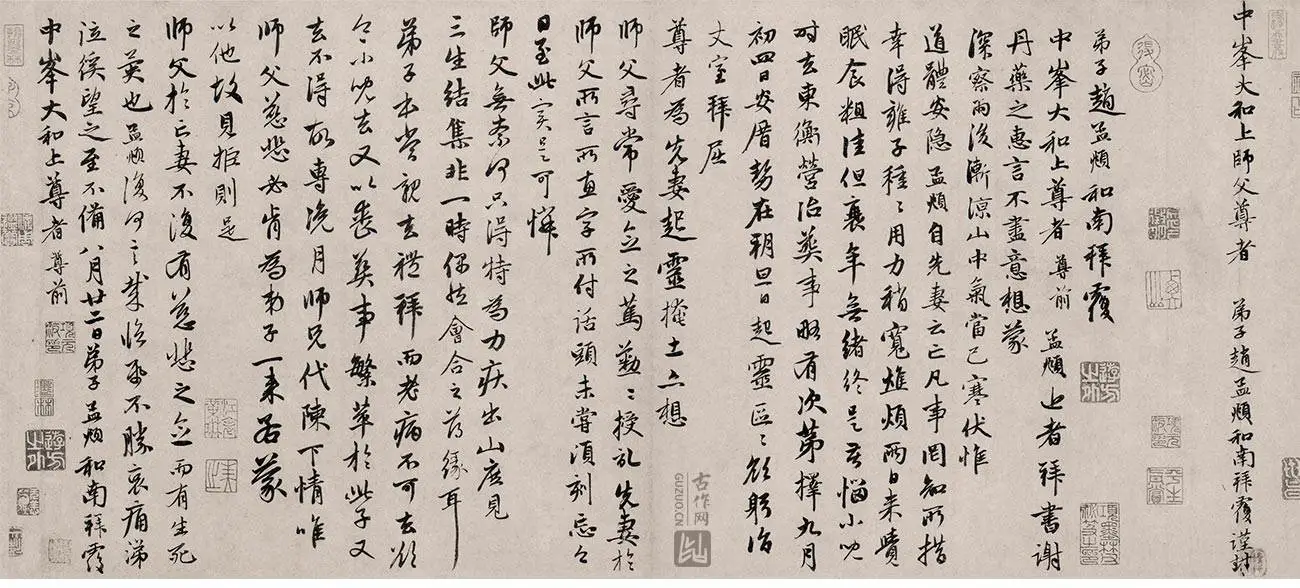 中峯大和上師父尊者 弟子趙孟頫和南拜覆 謹封
弟子趙孟頫和南拜覆
中峯大和上尊者 尊前 孟頫 近者拜書謝
丹藥之惠言不盡意想蒙
深察雨後漸涼山中氣當已寒伏惟
道體安隱孟頫自先妻云亡凡事罔知所措
幸得雍子種種用力稍寬煩兩日來贖
眠食粗佳但衰年無緒終是苦惱小兒
時去東衡營治葬事略有次第擇九月
初四日安厝勢在朔旦日起靈區區欲躬詣
丈室拜屈
尊者為先妻起靈掩土亦想
師父尋常愛念之篤懃懃授記先妻於
師父所言所直字所付話頭未嘗須刻忘今
日至此實是可憐
師父無奈何只得特為力疾出山庶見
三生結集非一時偶然會合之為緣耳
弟子本當親去禮拜而老病不可去欲
令小兒去又以喪葬事繁萃於此子又
去不得故專浼月師兄代陳下情唯
師父慈悲必肯為弟子一來否蒙
以他故見拒則是
師父於亡妻不復有慈悲之念而有生死
之異也孟頫復何言哉臨紙不勝哀痛涕
泣徯望之至不備八月廿二日弟子孟頫和南拜覆
中峯大和上尊者 尊前
古作网
GUZUO.CN